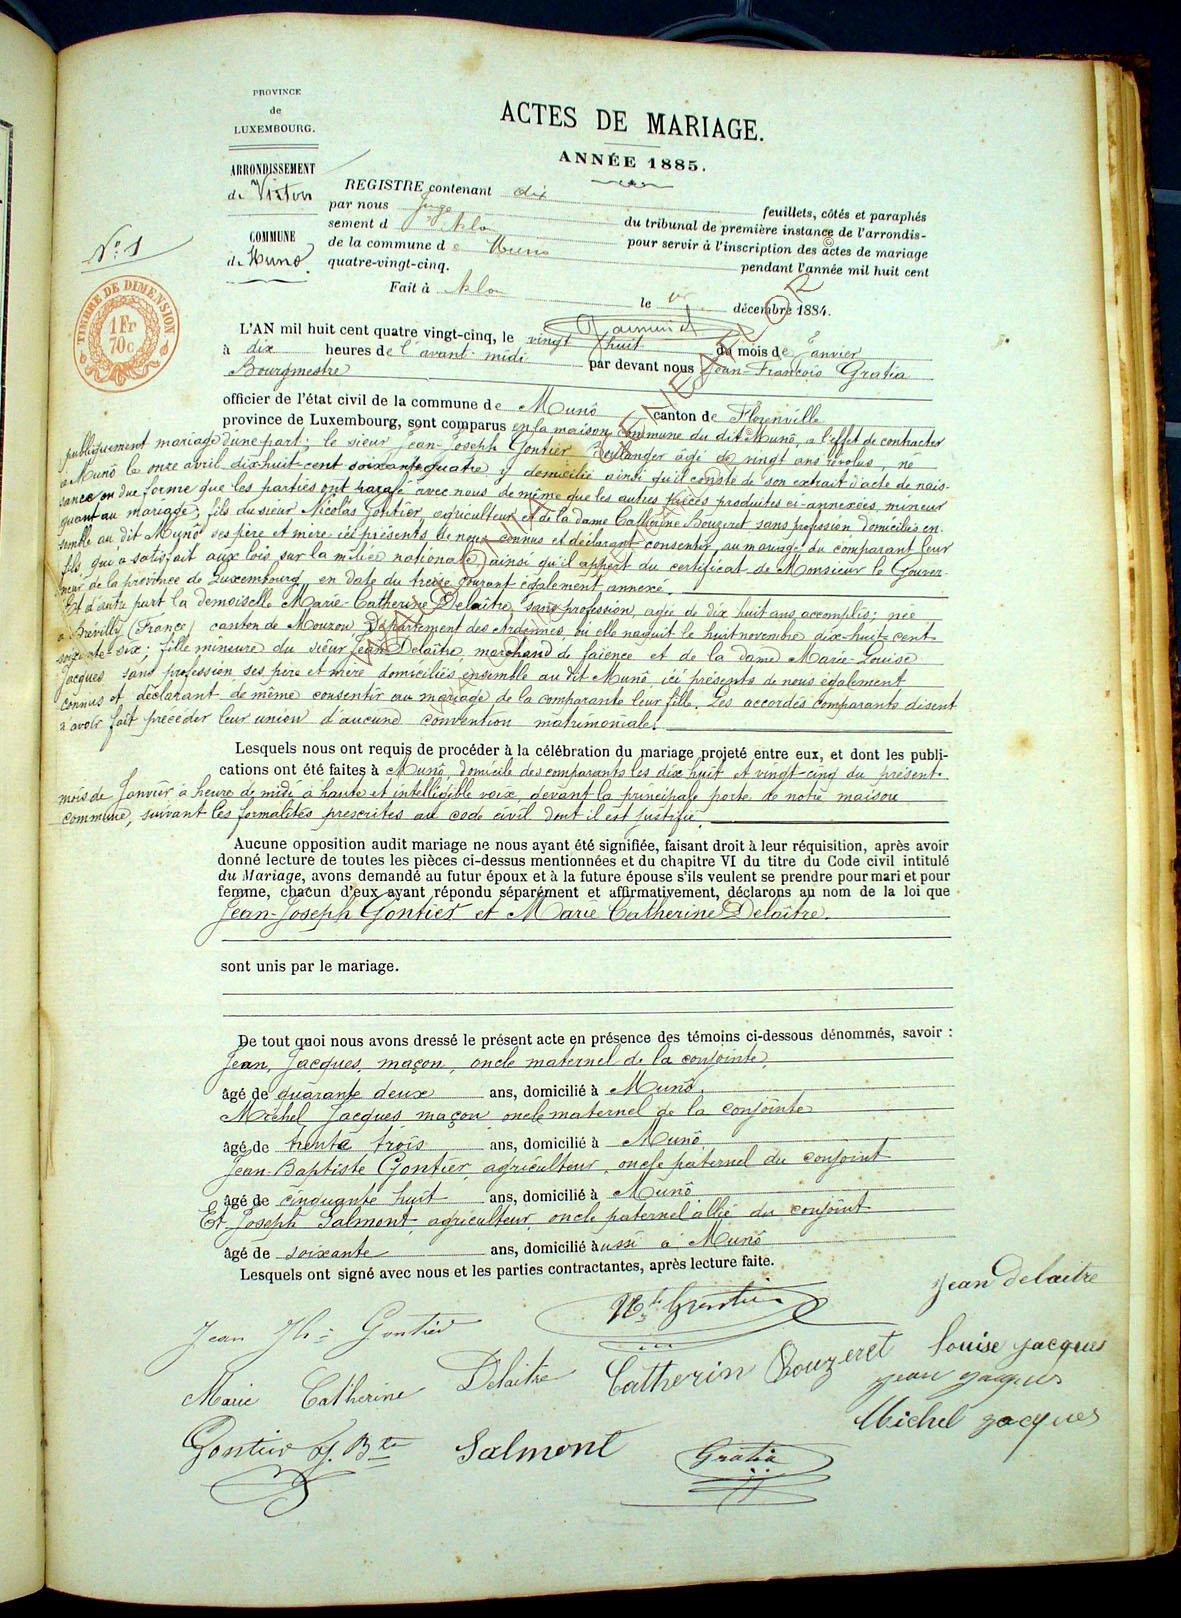 PROVINCE
de
LUXEMBOURG.
ARRONDISSEMENT
de Virton
COMMUNE
de Muno.
N° 1
TIMBRE DE DIMENSION
1 Fr
70c
ACTES DE MARIAGE.
ANNÉE 1885.
REGISTRE contenant dix feuillets, côtés et paraphés
par nous Juge du tribunal de première instance de l'arrondis-
sement d'Arlon pour servir à l'inscription des actes de mariage
de la commune de Muno pendant l'année mil huit cent
quatre-vingt-cinq.
Fait à Arlon le décembre 1884.
L'AN mil huit cent quatre vingt-cinq, le vingt huit du mois de Janvier
à dix heures de l'avant-midi par devant nous Jean-François Gratia
Bourgmestre
officier de l'état civil de la commune de Munô canton de Florenville
province de Luxembourg, sont comparus en la maison commune du dit Munô, à l'effet de contracter
publiquement mariage d'une part; le sieur Jean-Joseph Gontier Boulanger âgé de vingt ans révolus, né
à Munô le onze avril dix-huit-cent soixante quatre y domicilié ainsi qu'il conste de son extrait d'acte de nais-
sance en due forme que les parties ont parafé avec nous de même que les autres pièces produites ci-annexées, mineur
quant au mariage, fils du sieur Nicolas Gontier, agriculteur et de la dame Catherine Bouzeret sans profession domiciliés en-
semble au dit Munô ses père et mère ici présents de nous connus et déclarant consentir au mariage du comparant leur
fils, qui a satisfait aux lois sur la milice nationale ainsi qu'il appert du certificat de Monsieur le Gouver-
neur de la province de Luxembourg en date du treize courant également annexé.
Et d'autre part la demoiselle Marie-Catherine Delaître, sans profession, âgée de dix huit ans accomplis; née
à Brévilly (France) canton de Mouzon Département des Ardennes, où elle naquit le huit novembre dix-huit-cent
soixante-six; fille mineure du sieur Jean Delaître marchand de faïence et de la dame Marie-Louise
Jacques sans profession ses père et mère domiciliés ensemble au dit Munô ici présents de nous également
connus et déclarant de même consentir au mariage de la comparante leur fille. Les accordés comparants disent
n'avoir fait précéder leur union d'aucune convention matrimoniale.
Lesquels nous ont requis de procéder à la célébration du mariage projeté entre eux, et dont les publi-
cations ont été faites à Munô, domicile des comparants les dix huit et vingt-cinq du présent
mois de Janvier à heure de midi à haute et intelligible voix, devant la principale porte de notre maison
commune, suivant les formalités prescrites au code civil dont il est justifié.
Aucune opposition audit mariage ne nous ayant été signifiée, faisant droit à leur réquisition, après avoir
donné lecture de toutes les pièces ci-dessus mentionnées et du chapitre VI du titre du Code civil intitulé
du Mariage, avons demandé au futur époux et à la future épouse s'ils veulent se prendre pour mari et pour
femme, chacun d'eux ayant répondu séparément et affirmativement, déclarons au nom de la loi que
Jean-Joseph Gontier et Marie Catherine Delaître.
sont unis par le mariage.
De tout quoi nous avons dressé le présent acte en présence des témoins ci-dessous dénommés, savoir :
Jean, Jacques, maçon, oncle maternel de la conjointe,
âgé de quarante deux ans, domicilié à Munô.
Michel Jacques maçon oncle maternel de la conjointe
âgé de trente trois ans, domicilié à Munô
Jean-Baptiste Gontier, agriculteur, oncle paternel du conjoint
âgé de cinquante huit ans, domicilié à Munô
Et Joseph Salmont, agriculteur, oncle paternel allié du conjoint
âgé de soixante ans, domicilié aussi à Munô
Lesquels ont signé avec nous et les parties contractantes, après lecture faite.
Jean Delaitre
Jean Jh Gontier
Nas Gontier
Louise Jacques
Marie Catherine Delaitre
Catherin Bouzeret
Jean Jacques
Michel Jacques
Gontier J. Bte
Salmont
Gratia